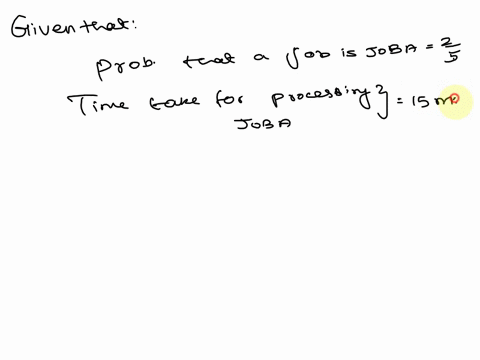 Given that:
Prob. that a job is JOBA = 2/5
Time take for processing} = 15 m
JOBA